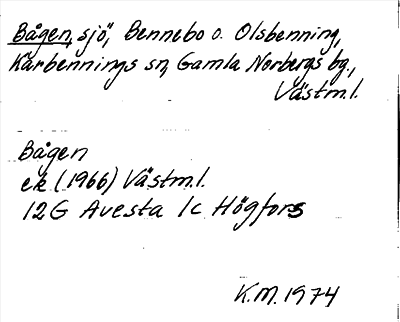 Bågen, sjö, Bennebo o. Olsbenning,
Karbennings sn, Gamla Norbergs bg.,
Västm.l.
Bågen
ek (1966) Västm.l.
12G Avesta 1c Högfors
K.M. 1974